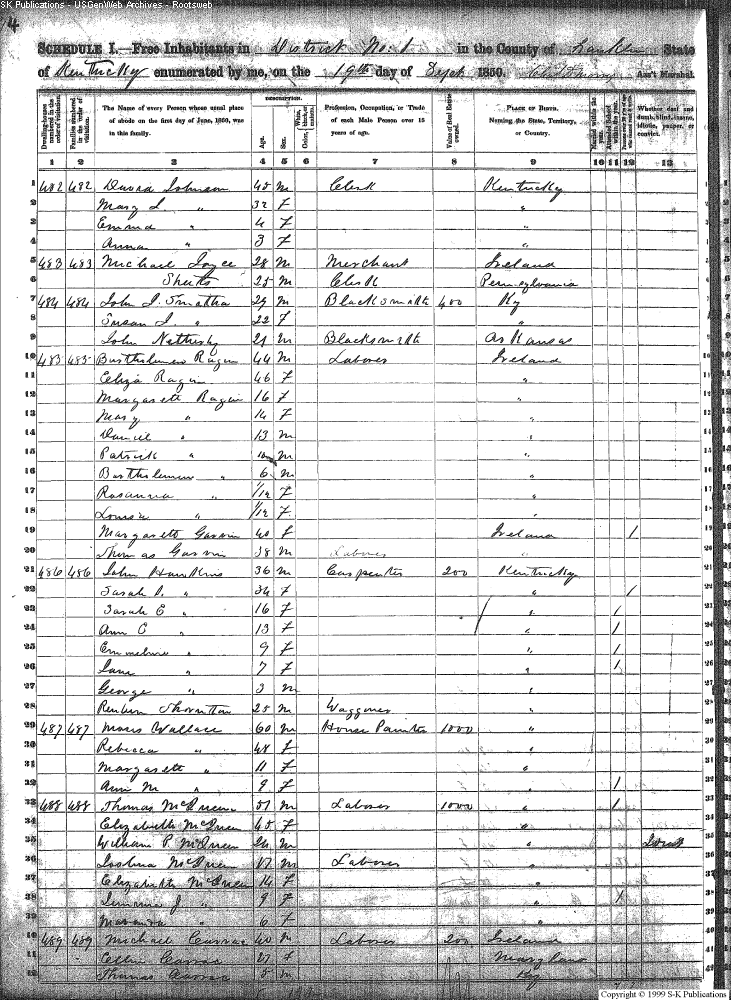 SK Publications - USGenWeb Archives - Rootsweb
4
SCHEDULE I.—Free Inhabitants in District No. 1 in the County of Franklin State
of Kentucky enumerated by me, on the 19th day of Sept 1850. Ass't Marshal.
Dwelling-houses numbered in the order of visitation.
Families numbered in the order of visitation.
The Name of every Person whose usual place of abode on the first day of June, 1850, was in this family.
DESCRIPTION.
Age.
Sex.
Color, White, black, or mulatto.
Profession, Occupation, or Trade of each Male Person over 15 years of age.
Value of Real Estate owned.
PLACE OF BIRTH. Naming the State, Territory, or Country.
Married within the year.
Attended School within the year.
Whether deaf and dumb, blind, insane, idiotic, pauper, or convict.
1 2 3 4 5 6 7 8 9 10 11 12 13
1 482 482 David Johnson 45 M Clerk Kentucky 1
2 Mary L. " 32 F " 2
3 Emma " 4 F " 3
4 Anna " 3 F " 4
5 483 483 Michael Joyce 28 M Merchant Ireland 5
6 Sheets 25 M Clerk Pennsylvania 6
7 484 484 John I. Smitha 29 M Blacksmith 400 Ky 7
8 Susan J. " 22 F " 8
9 John 21 M Blacksmith Arkansas 9
10 485 485 Bartholemew Ragin 44 M Laborer Ireland 10
11 Eliza Ragin 46 F " 11
12 Margarett Ragin 16 F " 12
13 Mary " 14 F " 13
14 Daniel " 13 M " 14
15 Patrick " 10 M " 15
16 Bartholemew " 6 M " 16
17 Rosanna " 1/12 F " 17
18 Louisa " 1/12 F " 18
19 Margarett Garvin 40 F Ireland / 19
20 Thomas Garvin 38 M Laborer " 20
21 486 486 John Hawkins 36 M Carpenter 200 Kentucky 21
22 Sarah P. " 34 F " / 22
23 Sarah E " 16 F " / 23
24 Ann C " 13 F " / 24
25 Emmeline " 9 F " / 25
26 Jane " 7 F " / 26
27 George " 3 M " 27
28 Reuben Thornton 25 M Waggoner " 28
29 487 487 Moses Wallace 60 M House Painter 1000 " 29
30 Rebecca " 48 F " 30
31 Margarett " 11 F " 31
32 Ann M " 9 F " / 32
33 488 488 Thomas McQueen 51 M Laborer 1000 " / 33
34 Elizabeth McQueen 45 F " 34
35 William P. McQueen 24 M " 35
36 Joshua McQueen 17 M Laborer " 36
37 Elizabeth McQueen 14 F " 37
38 J " 9 F " / 38
39 " 6 F " 39
40 489 489 Michael 40 M Laborer 200 Ireland 40
41 27 F Maryland 41
42 Thomas 5 M Ky 42
Copyright © 1999 S-K Publications